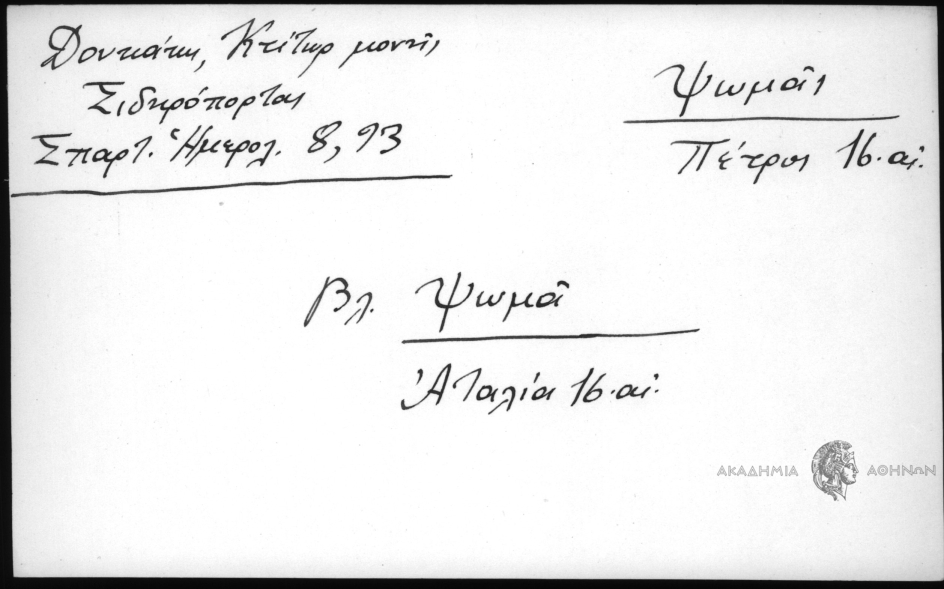 Δουκάκη, Κτίτωρ μονῆς
Σιδηρόπορτας
Σπαρτ. Ἡμερολ. 8, 93
Ψωμᾶς
Πέτρος 16. αἰ.
Βλ. Ψωμᾶ
Ἀταλία 16. αἰ.
ΑΚΑΔΗΜΙΑ ΑΘΗΝΩΝ